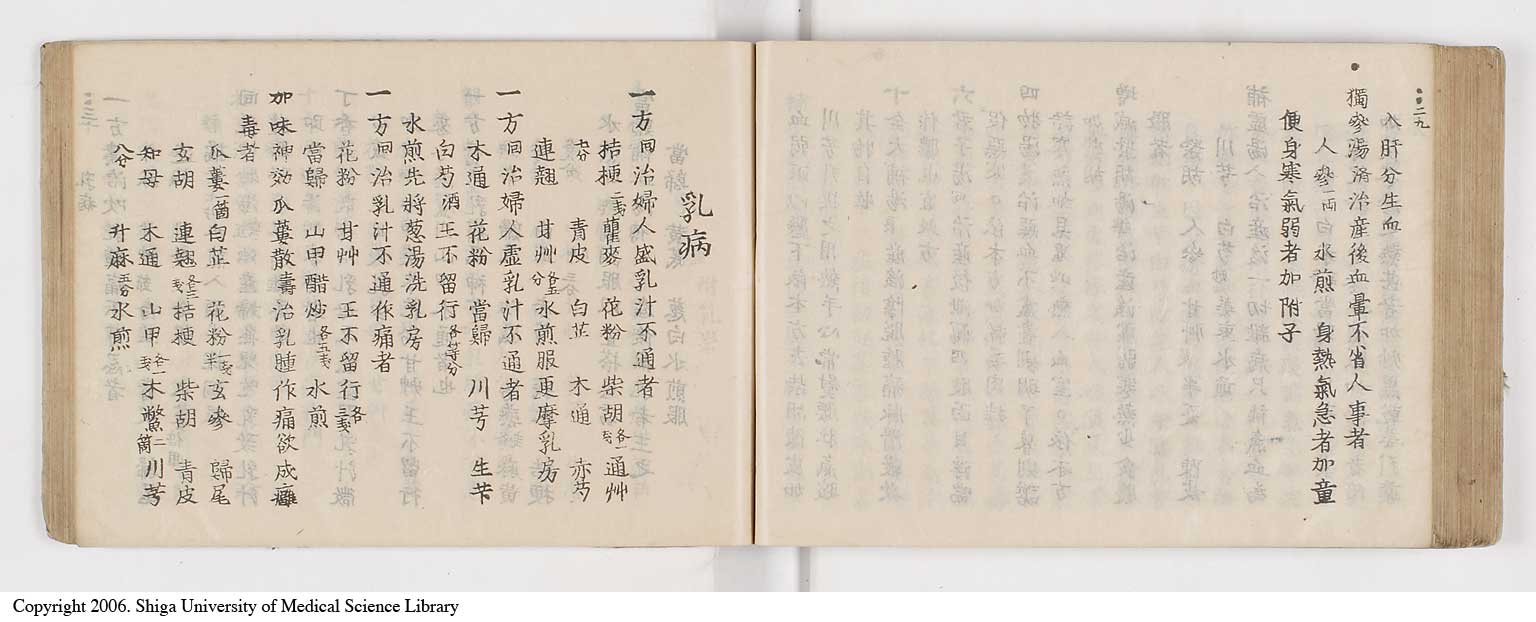 二九
入肝分生血
獨參湯濟治産後血暈不省人事者
人參一両白水煎 身熱氣急者加童
便身寒氣弱者加附子
乳病
一方回治婦人盛乳汁不通者
桔梗二戔瞿麥 花粉 柴胡各一戔通艸
七分 青皮 白芷 木通 赤芍
連翹 甘艸各五分水煎服更摩乳房
一方回治婦人虚乳汁不通者
木通 花粉 當歸 川芎 生芐
白芍酒王不留行各等分
水煎先將葱湯洗乳房
一方回治乳汁不通作痛者
花粉 甘艸 王不留行各三戔
當歸 山甲醋炒各五戔 水煎
加味神効瓜蔞散壽治乳腫作痛欲成癰
毒者
瓜蔞一箇白芷 花粉半一戔玄參 歸尾
玄胡 連翹各三戔桔梗 柴胡 青皮
知母 木通 山甲各一戔木鱉二箇川芎
八分 升麻五分水煎
三十
Copyright 2006. Shiga University of Medical Science Library